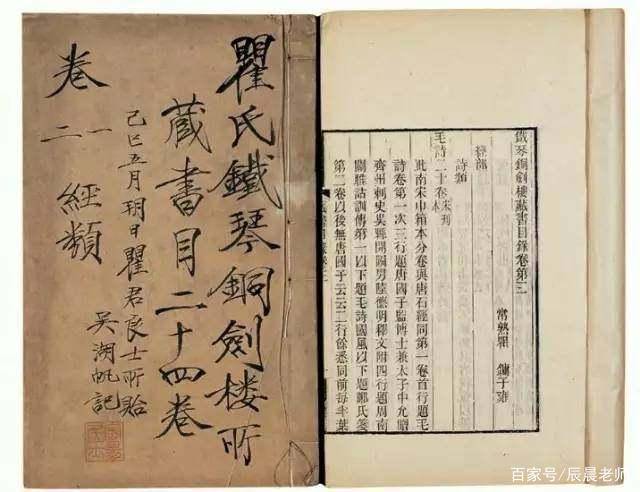 瞿氏鐵琴銅劍樓所
藏書目二十四卷
己巳五月朔日瞿君良士所貽
吳湖帆記
經類
卷
一二
鐵琴銅劍樓藏書目錄卷第三
常熟瞿 鏞子雍
經部
詩類
毛詩二十卷宋刊本
此南宋巾箱本分卷與唐石經同第一卷首行題毛
詩卷第一次三行題唐國子監博士兼太子中允贈
齊州刺史吳縣開國男陸德明釋文附四行題周南
關雎詁訓傳第一以下題毛詩國風以下題鄭氏箋
第二卷以後無唐國子云云二行餘悉同前每半葉
百家号/辰晨老师